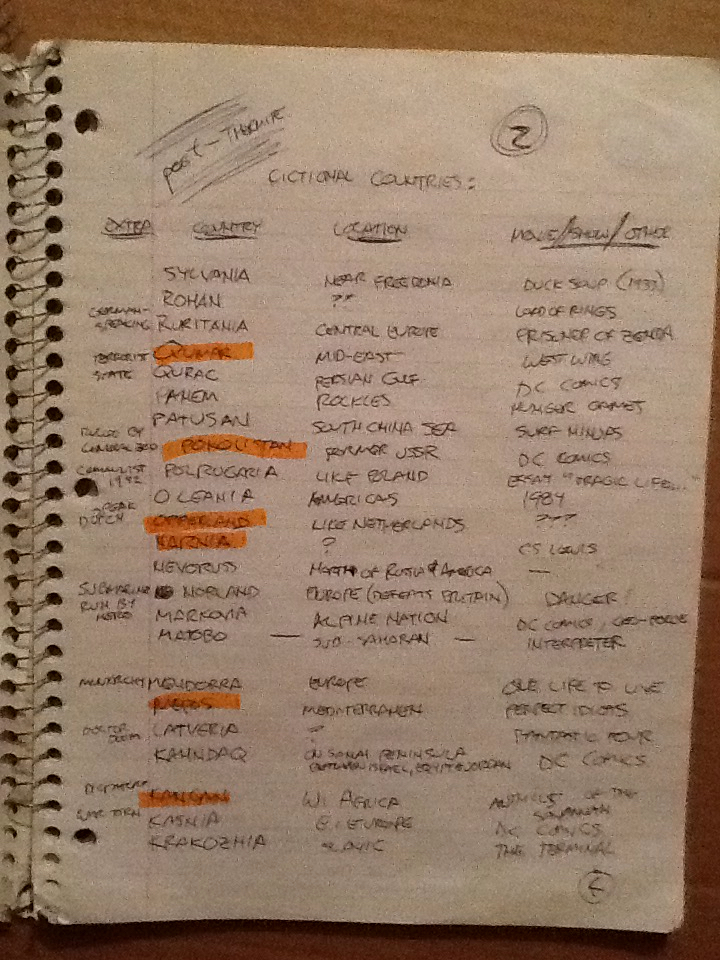 POST-THERMITE
2
FICTIONAL COUNTRIES:
EXTRA COUNTRY LOCATION MOVIE/SHOW/OTHER
SYLVANIA NEAR FREEDONIA DUCK SOUP (1933)
ROHAN ?? LORD OF RINGS
GERMAN-SPEAKING RURITANIA CENTRAL EUROPE PRISONER OF ZENDA
TERRORIST STATE QUMAR MID-EAST WEST WING
QURAC PERSIAN GULF DC COMICS
PANEM ROCKIES HUNGER GAMES
PATUSAN SOUTH CHINA SEA SURF NINJAS
RULED BY GENERAL ZOD POKOLISTAN FORMER USSR DC COMICS
COMMUNIST 1982 POLRUGARIA LIKE POLAND ESSAY "TRAGIC LIFE..."
OCEANIA AMERICAS 1984
SPEAK DUTCH OPPERLAND LIKE NETHERLANDS ???
NARNIA ? CS LEWIS
NEVORUSS NORTH OF RUSSIA & AMERICA —
SUBMARINE RUN BY NORLAND EUROPE (DEFEATS BRITAIN) DANGER!
MARKOVIA ALPINE NATION DC COMICS, GEO-FORCE
MATOBO — SUB-SAHARAN — INTERPRETER
MONARCHY MENDORRA EUROPE ONE LIFE TO LIVE
MEPOS MEDITERRANEAN PERFECT IDIOTS
DOCTOR DOOM LATVERIA ? FANTASTIC FOUR
KAHNDAQ ON SANAI PENINSULA BETWEEN ISRAEL, EGYPT & JORDAN DC COMICS
KANGAN W. AFRICA OF THE SAVANNAH
WAR TORN KASNIA E. EUROPE DC COMICS
KRAKOZHIA SLAVIC THE TERMINAL